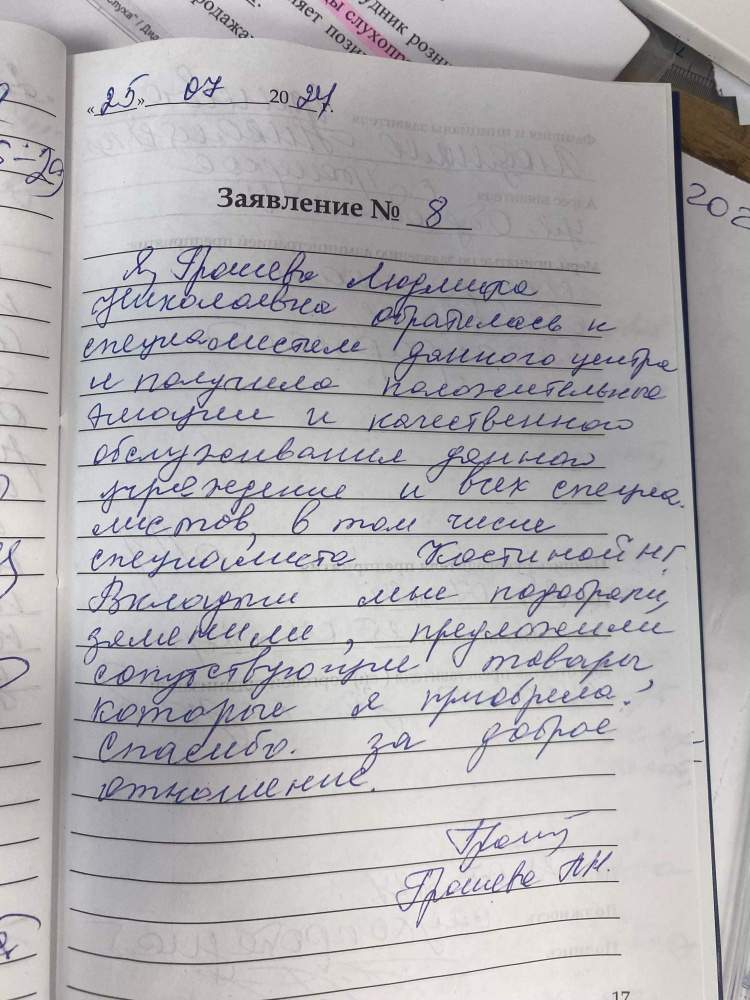 удник розни
ды слухопр
ляет позн
продажа
слуха" / Диа
«25» 07 2024.
Заявление № 8
Я, Грошева Людмила
Николаевна обратилась к
специалистам данного центра
и получила положительные
эмоции и качественного
обслуживания данного
учреждение и всех специа.
листов, в том числе
специалиста Костиной НГ.
Вкладыши мне подобрали,
заменили, предложили
сопутствующие товары
которые я приобрела.
Спасибо. за доброе
отношение.
Грошева ЛН.
17
202